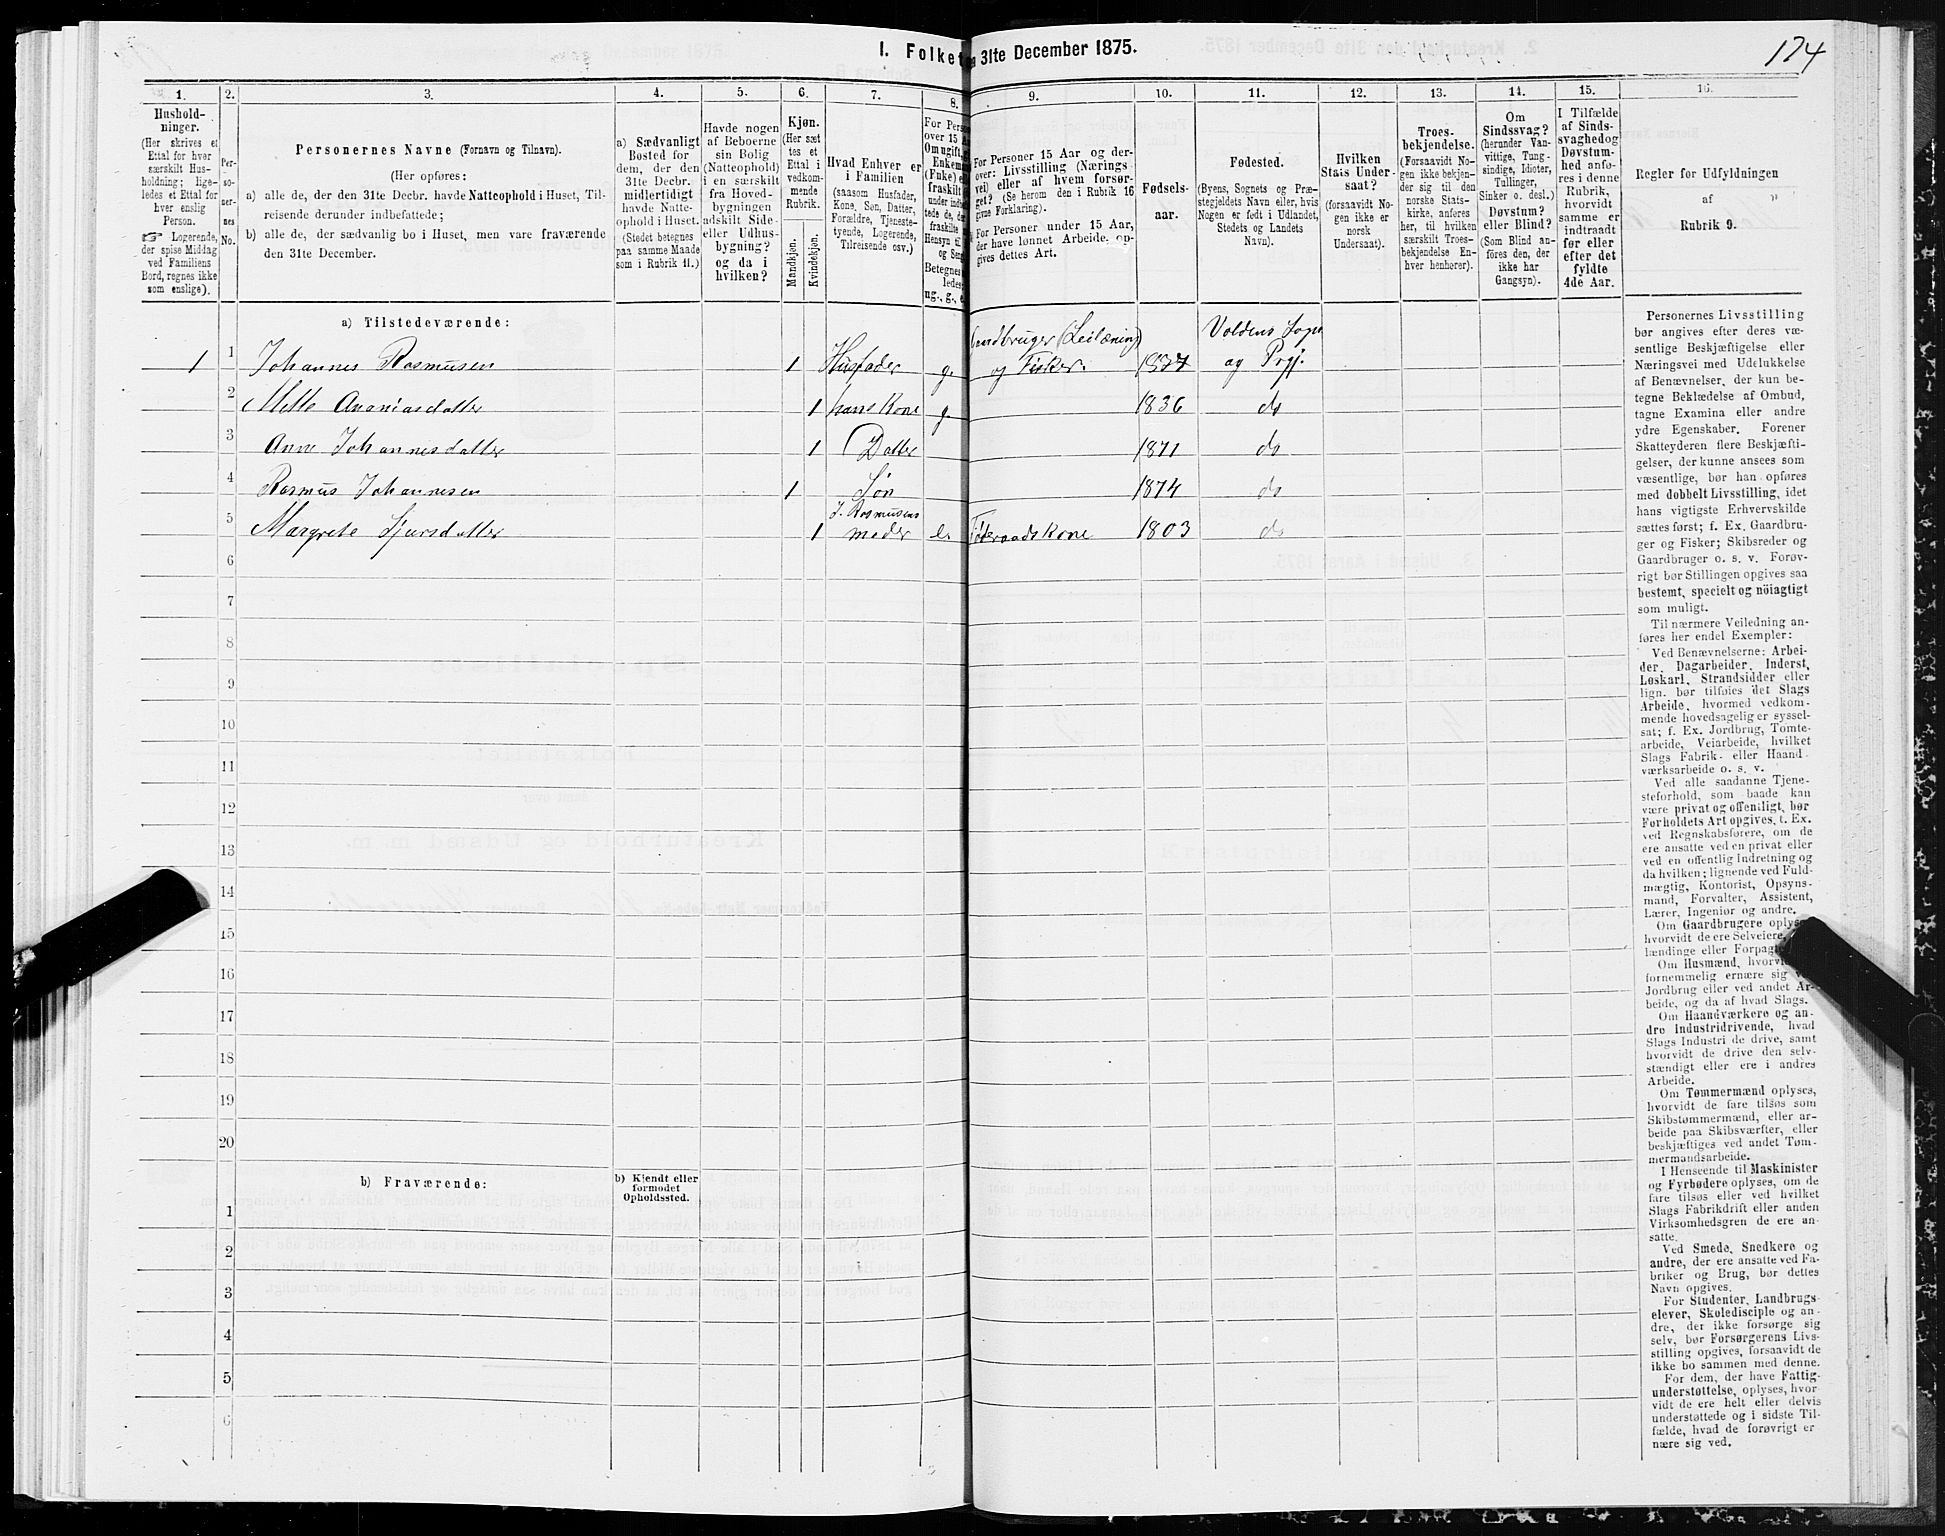 I. Folket
31te December 1875.
174
1.
2.
3.
4.
5.
6.
7.
8.
9.
10.
11.
12.
13.
14.
15.
16.
Hushold-
ninger.
(Her skrives et
Ettal for hver
særskilt Hus-
holdning; lige-
ledes et Ettal for
hver enslig
Person.
☞ Logerende,
der spise Middag
ved Familiens
Bord, regnes ikke
som enslige).
Per-
so-
ner-
nes
No.
Personernes Navne (Fornavn og Tilnavn).
(Her opføres:
a) alle de, der den 31te Decbr. havde Natteophold i Huset, Til-
reisende derunder indbefattede;
b) alle de, der sædvanlig bo i Huset, men vare fraværende
den 31te December.
a) Sædvanligt
Bosted for
dem, der den
31te Decbr.
midlertidigt
havde Natte-
ophold i Huset.
(Stedet betegnes
paa samme Maade
som i Rubrik 11.)
Havde nogen
af Beboerne
sin Bolig
(Natteophold)
i en særskilt
fra Hoved-
bygningen
adskilt Side-
eller Udhus-
bygning?
og da i
hvilken?
Kjøn.
(Her sæt
tes et
Ettal i
vedkom-
mende
Rubrik.
Mandkjøn.
Kvindekjøn.
Hvad Enhver er
i Familien
(saasom Husfader,
Kone, Søn, Datter,
Forældre, Tjeneste-
tyende, Logerende,
Tilreisende osv.)
For Perso
over 15 Aar
Omugift,
Enkem
(Enke) e
fraskilt
under ind
tede de, d
fraskilte
Hensyn til
og Sen
Betegnes
ledes
ug., g., e.
For Personer 15 Aar og der-
over: Livsstilling (Nærings-
vei) eller af hvem forsør-
get? (Se herom den i Rubrik 16
givne Forklaring).
For Personer under 15 Aar,
der have lønnet Arbeide, op-
gives dettes Art.
Fødsels-
aar.
Fødested.
(Byens, Sognets og Præ-
stegjeldets Navn eller, hvis
Nogen er født i Udlandet,
Stedets og Landets
Navn).
Hvilken
Stats Under-
saat?
(forsaavidt No-
gen ikke er
norsk
Undersaat).
Troes-
bekjendelse.
(Forsaavidt No-
gen ikke bekjen-
der sig til den
norske Stats-
kirke, anføres
her, til hvilken
særskilt Troes-
bekjendelse En-
hver henhører).
Om
Sindssvag?
(herunder Van-
vittige, Tung-
sindige, Idioter,
Tullinger,
Sinker o. desl.)
Døvstum?
eller Blind?
(Som Blind an-
føres den, der
ikke har
Gangsyn).
I Tilfælde
af Sinds-
svaghed og
Døvstum-
hed anfø-
res i denne
Rubrik,
hvorvidt
samme er
indtraadt
før eller
efter det
fyldte
4de Aar.
Regler for Udfyldningen
af
Rubrik 9.
a) Tilstedeværende:
1 1 Johannes Rasmusen 1 Husfader g. andbruger (Leilæning) og Fisker. Voldens Sogn og Prgj.
2 Mette Ananiasdatter 1 hans Kone g. 1836 do
3 Anne Johannesdatter 1 Datter 1871 do
4 Rasmus Johannesen 1 Søn 1874 do
5 Margrete Sjursdatter 1 J. Rasmusens moder e. Føderaadskone 1803 do
6
7
8
9
10
11
12
13
14
15
16
17
18
19
20
b) Fraværende:
b) Kjendt eller
formodet
Opholdssted.
1
2
3
4
5
6
Personernes Livsstilling
bør angives efter deres væ-
sentlige Beskjæftigelse eller
Næringsvei med Udelukkelse
af Benævnelser, der kun be-
tegne Beklædelse af Ombud,
tagne Examina eller andre
ydre Egenskaber. Forener
Skatteyderen flere Beskjæfti-
gelser, der kunne ansees som
væsentlige, bør han opføres
med dobbelt Livsstilling, idet
hans vigtigste Erhvervskilde
sættes først; f. Ex. Gaardbru-
ger og Fisker; Skibsreder og
Gaardbruger o. s. v. Forøv-
rigt bør Stillingen opgives saa
bestemt, specielt og nöiagtigt
som muligt.
Til nærmere Veiledning an-
føres her endel Exempler:
Ved Benævnelserne: Arbei-
der, Dagarbeider, Inderst,
Løskarl, Strandsidder eller
lign. bør tilføies det Slags
Arbeide, hvormed vedkom-
mende hovedsagelig er syssel-
sat; f. Ex. Jordbrug, Tomte-
arbeide, Veiarbeide, hvilket
Slags Fabrik- eller Haand-
værksarbeide o. s. v.
Ved alle saadanne Tjene-
steforhold, som baade kan
være privat og offentligt, bør
Forholdets Art opgives, t. Ex.
ved Regnskabsførere, om de
ere ansatte ved en privat eller
ved en offentlig Indretning og
da hvilken; lignende ved Fuld-
mægtig, Kontorist, Opsyns-
mand, Forvalter, Assistent,
Lærer, Ingeniør og andre.
Om Gaardbrugere oplyse
hvorvidt de ere Selveiere,
lændinge eller Forpagte
Om Husmænd, hvorvi
fornemmelig ernære sig v
Jordbrug eller ved andet Ar-
beide, og da af hvad Slags.
Om Haandværkere og an-
dre Industridrivende, hvad
Slags Industri de drive, samt
hvorvidt de drive den selv-
stændigt eller ere i andres
Arbeide.
Om Tømmermænd oplyses,
hvorvidt de fare tilsøs som
Skibstømmermænd, eller ar-
beide paa Skibsværfter, eller
beskjæftiges ved andet Tøm-
mermandsarbeide.
I Henseende til Maskinister
og Fyrbødere oplyses, om de
fare tilsøs eller ved hvilket
Slags Fabrikdrift eller anden
Virksomhedsgren de ere an-
satte.
Ved Smede, Snedkere og
andre, der ere ansatte ved Fa-
briker og Brug, bør dettes
Navn opgives.
For Studenter, Landbrugs-
elever, Skoledisciple og an-
dre, der ikke forsørge sig
selv, bør Forsørgerens Livs-
stilling opgives, forsaavidt de
ikke bo sammen med denne.
For dem, der have Fattig-
understøttelse, oplyses, hvor-
vidt de ere helt eller delvis
understøttede og i sidste Til-
fælde, hvad de forøvrigt er
nære sig ved.